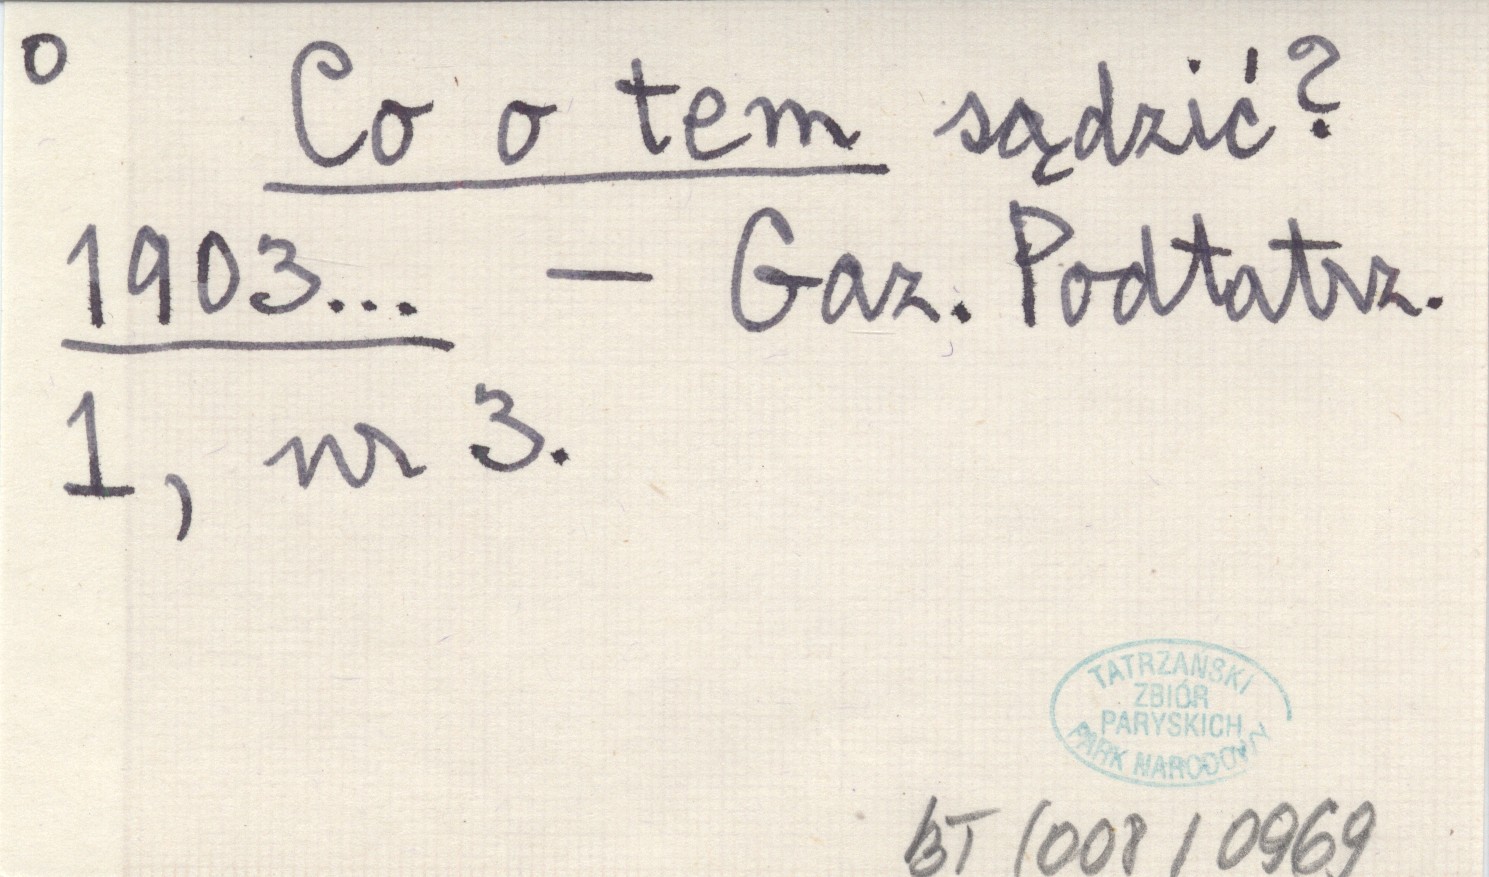 o
Co o tem sądzić?
1903... — Gaz. Podtatrz.
1, nr 3.
TATRZAŃSKI
ZBIÓR
PARYSKICH
PARK NARODOWY
BT /008 / 0969